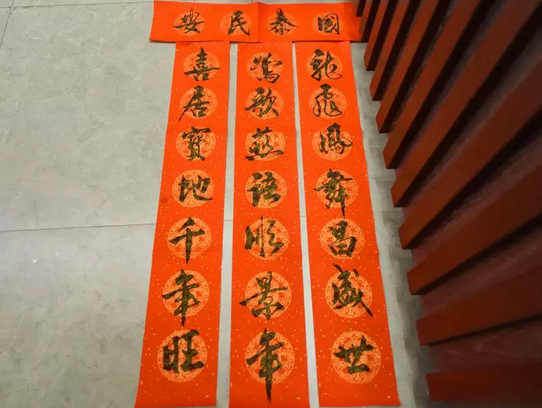 國泰民安
龍飛鳳舞昌盛世
鶯歌燕语順景年
喜居寶地千年旺